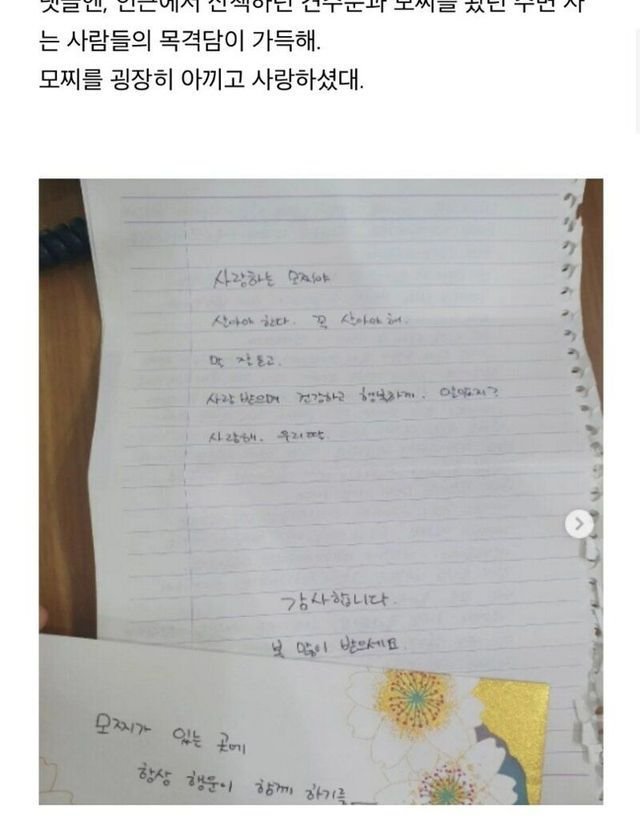 댓글엔, 인근에서 산책하던 견주분과 모찌를 봤던 주변 사
는 사람들의 목격담이 가득해.
모찌를 굉장히 아끼고 사랑하셨대.
사랑하는 모찌야
살아야 한다. 꼭 살아야 해.
말 잘 듣고.
사랑 받으며 건강하고 행복하게. 알았지?
사랑해. 우리딸
감사합니다.
복 많이 받으세요.
모찌가 있는 곳에
항상 행운이 함께 하기를